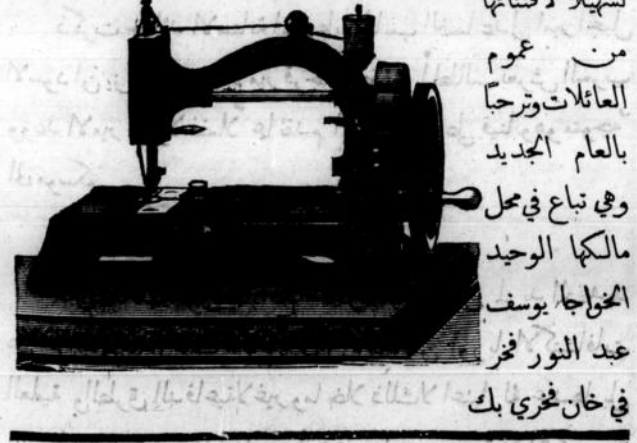 تسهيلاً لاقتنائها
من عموم
العائلات وترحبًا
بالعام الجديد
وهي تباع في محل
مالكها الوحيد
الخواجا يوسف
عبد النور فخر
في خان فخري بك